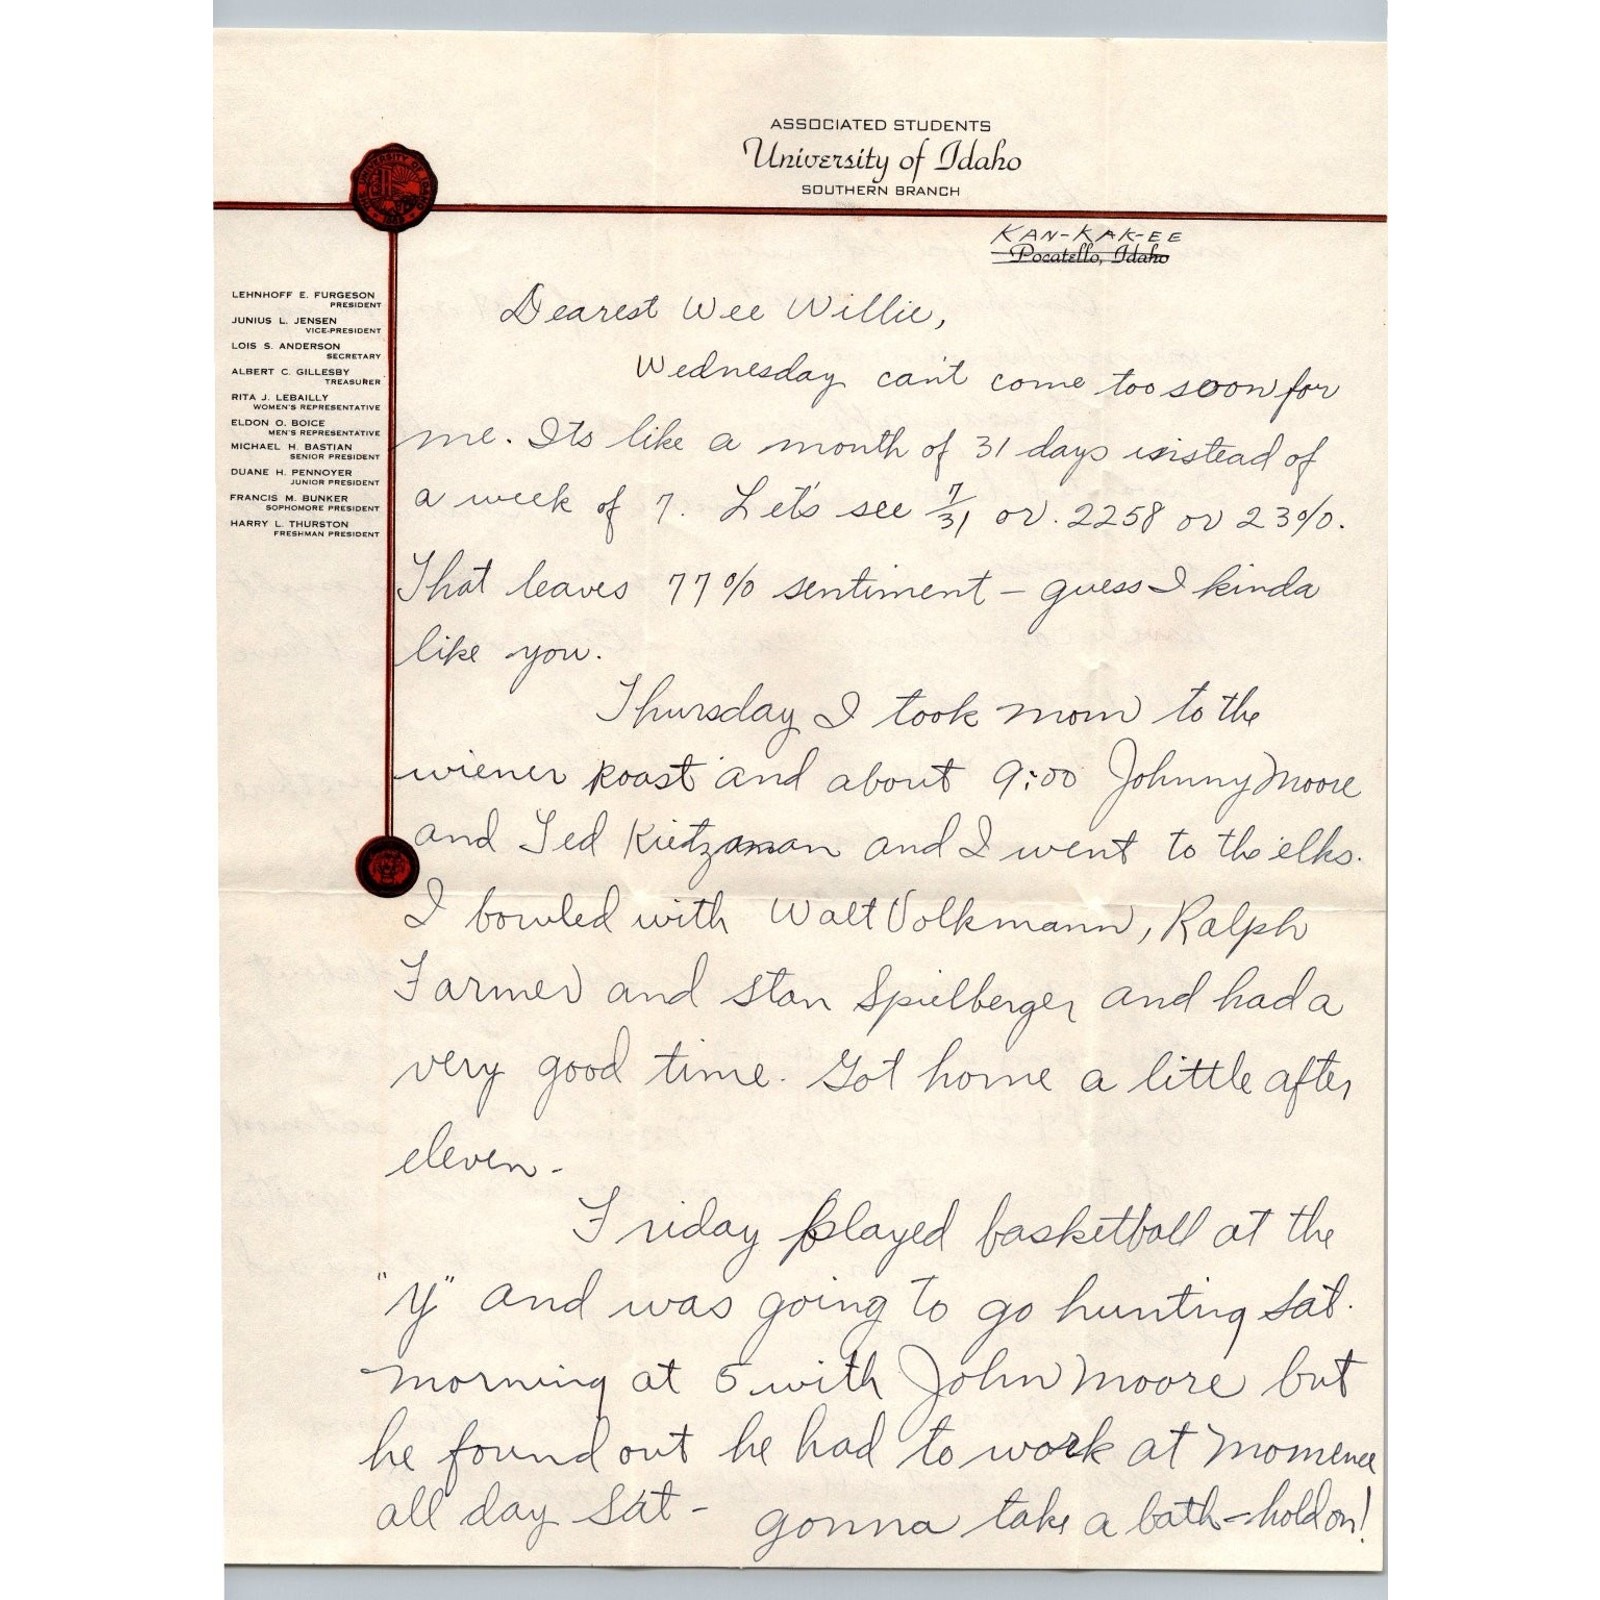 ASSOCIATED STUDENTS
University of Idaho
SOUTHERN BRANCH
THE UNIVERSITY OF IDAHO
KAN-KAK-EE
Pocatello, Idaho
LEHNHOFF E. FURGESON
PRESIDENT
JUNIUS L. JENSEN
VICE-PRESIDENT
LOIS S. ANDERSON
SECRETARY
ALBERT C. GILLESBY
TREASURER
RITA J. LEBAILLY
WOMEN'S REPRESENTATIVE
ELDON O. BOICE
MEN'S REPRESENTATIVE
MICHAEL H. BASTIAN
SENIOR PRESIDENT
DUANE H. PENNOYER
JUNIOR PRESIDENT
FRANCIS M. BUNKER
SOPHOMORE PRESIDENT
HARRY L. THURSTON
FRESHMAN PRESIDENT
Dearest Wee Willie,
Wednesday can't come too soon for
me. Its like a month of 31 days instead of
a week of 7. Let's see 7/31 or .2258 or 23%.
That leaves 77% sentiment – guess I kinda
like you.
Thursday I took mom to the
wiener roast and about 9:00 Johnny Moore
and Ted Kietzman and I went to the elks.
I bowled with Walt Volkmann, Ralph
Farmer and Stan Spielberger and had a
very good time. Got home a little after
eleven-
Friday played basketball at the
"Y" and was going to go hunting Sat.
morning at 5 with John Moore but
he found out he had to work at Momence
all day Sat - gonna take a bath - hold on!